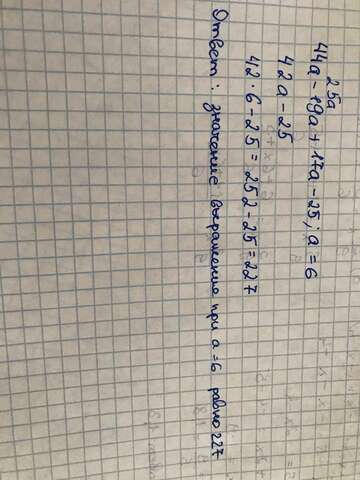 25a
44a - 19a + 17a - 25; a = 6
42a - 25
42 · 6 - 25 = 252 - 25 = 227
Ответ: значение выражения при a = 6 равно 227